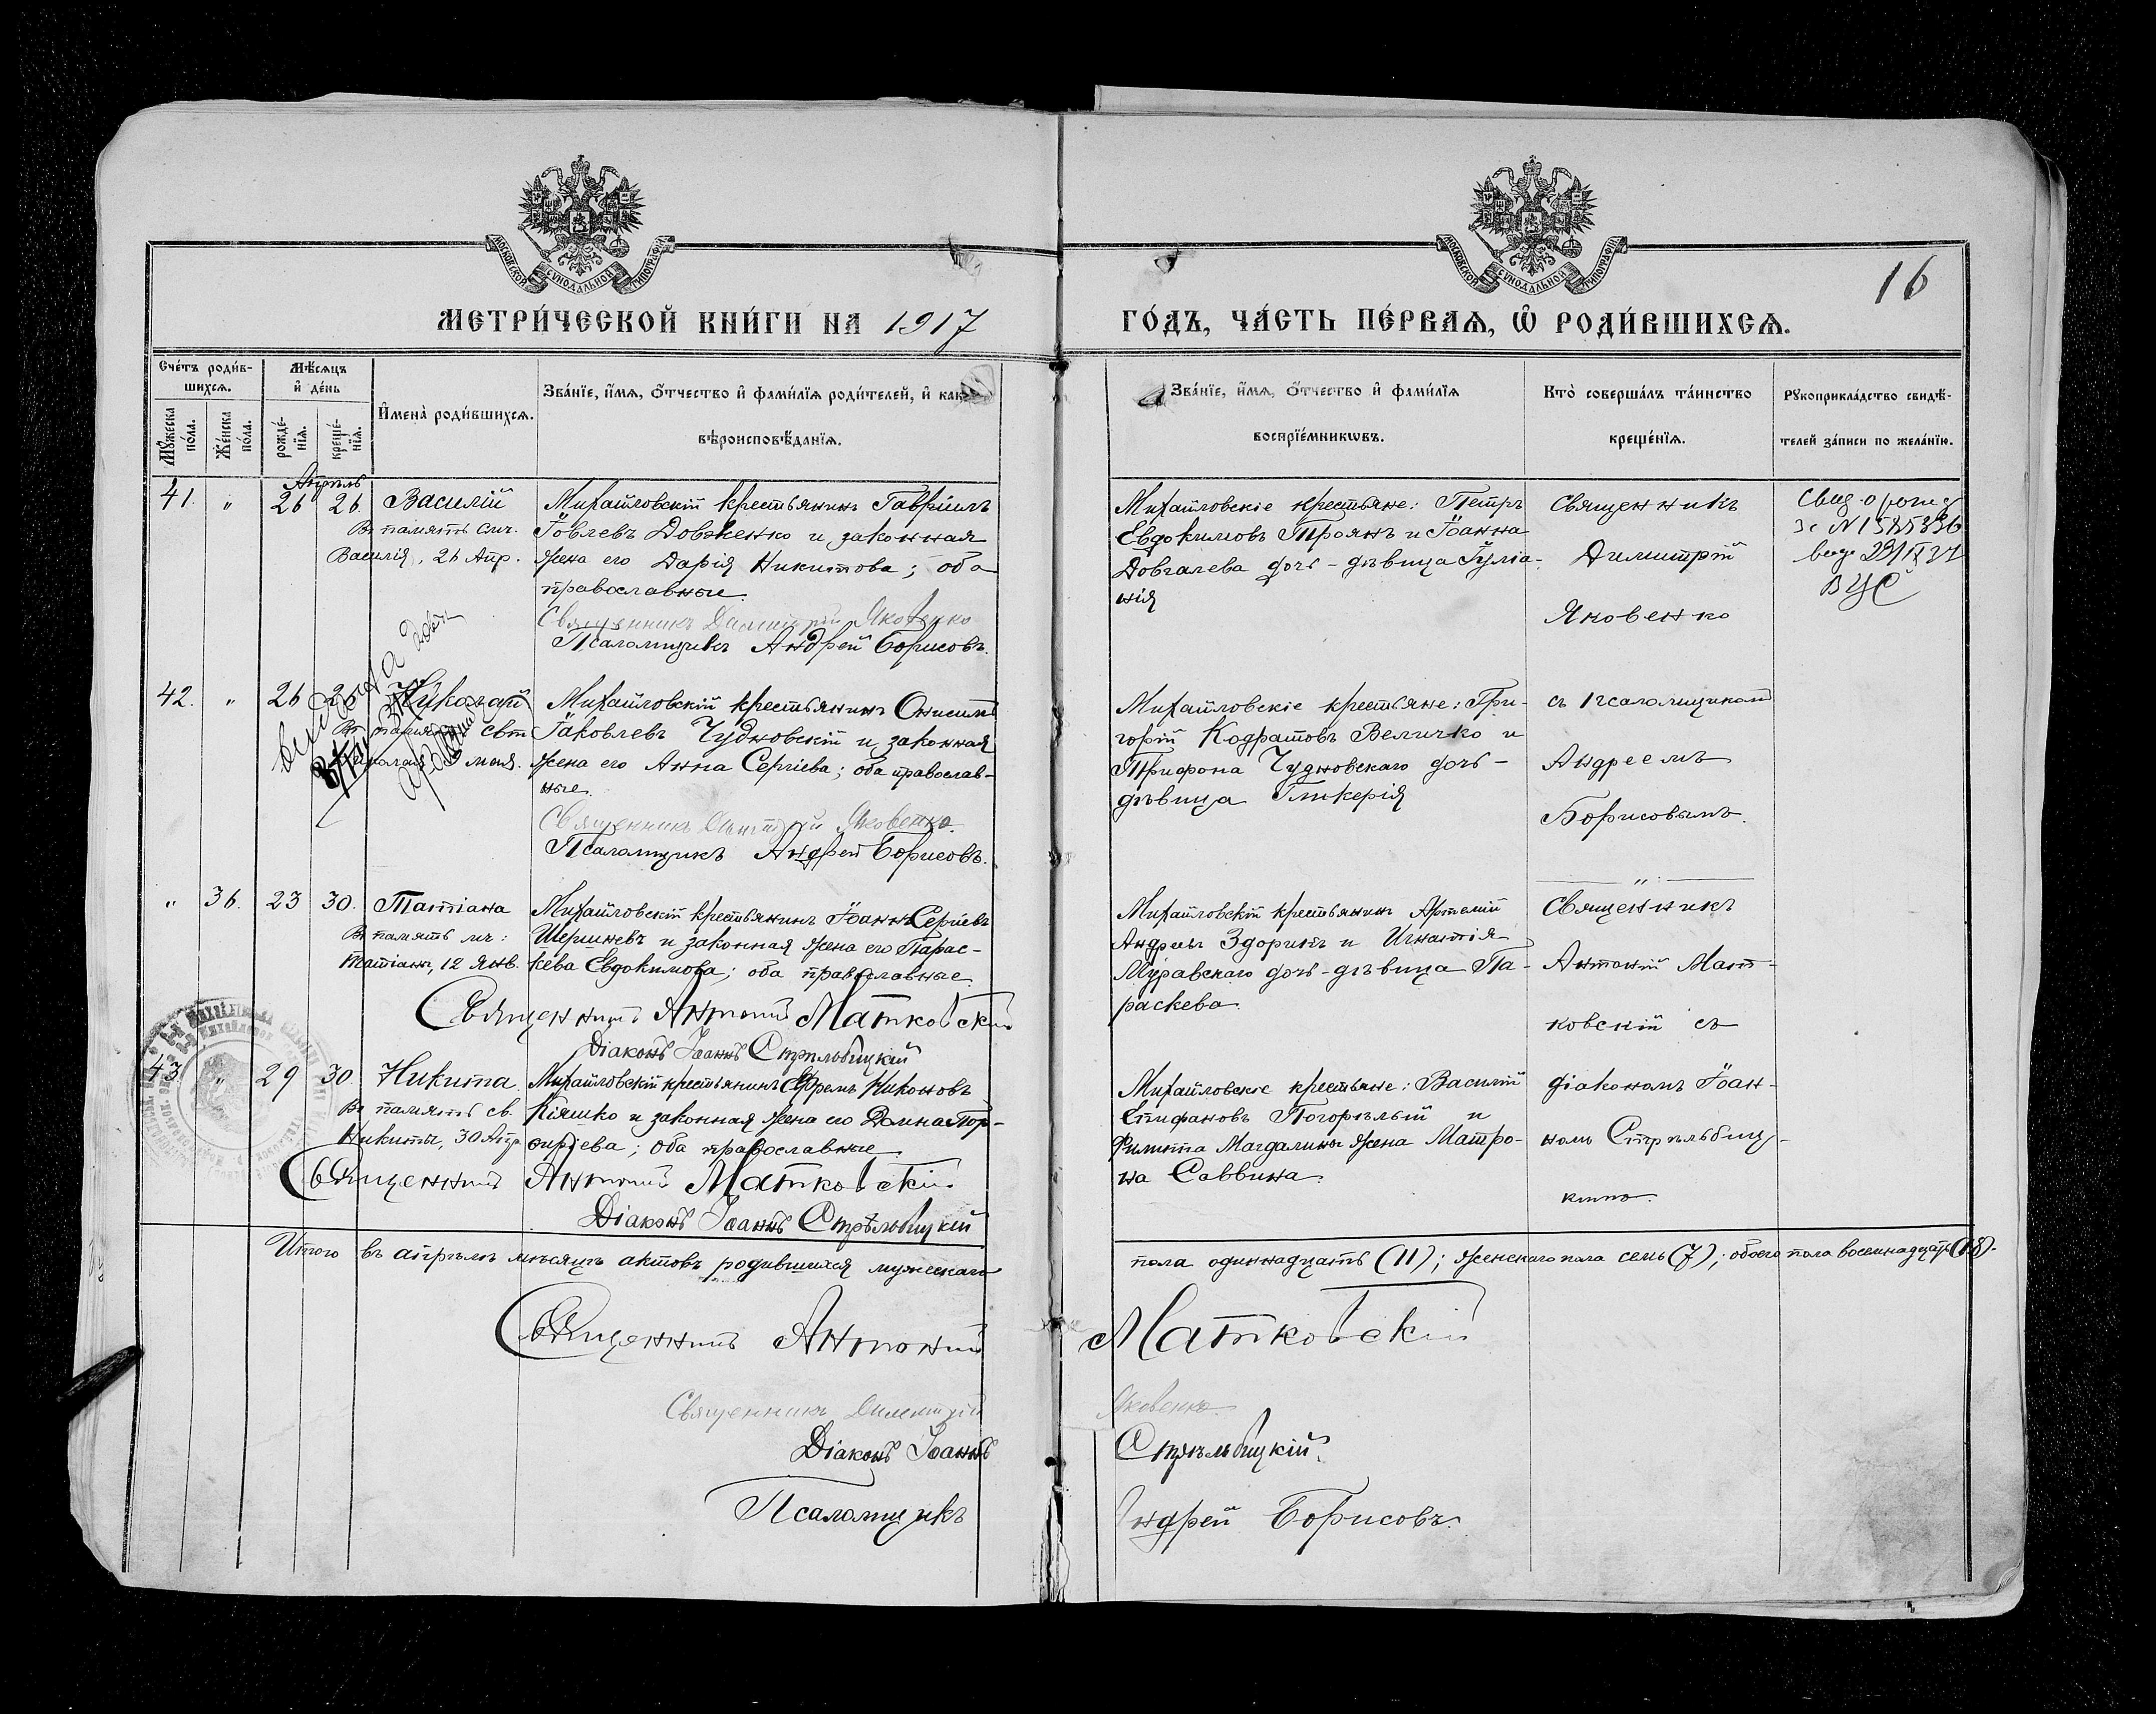 МОСКОВСКОЙ СУНОДАЛЬНОЙ ТИПОГРАФІИ
МОСКОВСКОЙ СУНОДАЛЬНОЙ ТИПОГРАФІИ
16
МЕТРИ́ЧЕСКОЙ КНИ́ГИ НА 1917
ГО́ДЪ, ЧА́СТЬ ПЕ́РВАѦ, Ѡ РОДИ́ВШИХСѦ.
Сче́тъ роди́в-
шихсѧ.
Мѣ́сѧцъ
и҆ де́нь
Мꙋ́жеска по́ла.
Же́нска по́ла.
рожде́-
нїѧ.
креще́-
нїѧ.
И҆мена̀ роди́вшихсѧ.
Зва́нїе, и҆́мѧ, ѻ҆́тчество и҆ фами́лїѧ роди́телей, и҆ как
вѣроисповѣ́данїѧ.
Зва́нїе, и҆́мѧ, ѻ҆́тчество и҆ фами́лїѧ
воспрїе́мникѡвъ.
Кто̀ соверша́лъ та́инство
креще́нїѧ.
Рꙋкоприкла́дство свидѣ́-
телей за́писи по жела́нїю.
Апрѣль
41. " 26 26. Василій
Въ память смч.
Василія, 26 Апр.
Михайловскій крестьянинъ Гавріилъ
Іовлевъ Довженко и законная
жена его Дарія Никитова; оба
православные.
Священникъ Димитрій Яковенко
Псаломщикъ Андрей Борисовъ.
Михайловскіе крестьяне: Петръ
Евдокимовъ Троянъ и Іоанна
Довгалева дочь-дѣвица Іуліа-
нія
Священникъ
Димитрій
Яковенко
Свид о рожд
ВЦС
42. " 26 26 Николай
Въ память свт
Николая 9 мая.
Михайловскій крестьянинъ Онисимъ
Іаковлевъ Чудновскій и законная
жена его Анна Сергіева; оба православ-
ные.
Священникъ Димитрій Яковенко.
Псаломщикъ Андрей Борисовъ.
Михайловскіе крестьяне: Гри-
горій Кодратовъ Величко и
Трифона Чудновскаго дочь-
дѣвица Гликерія
съ псаломщикомъ
Андреемъ
Борисовымъ.
"
" 36. 23 30. Татіана
Въ память мч:
Татіаны, 12 Янв.
Михайловскій крестьянинъ Іоаннъ Сергіевъ
Шершневъ и законная жена его Парас-
кева Евдокимова; оба православные.
Священникъ Антоній Матковскій
Діаконъ Іоаннъ Стрѣльбицкій
Михайловскій крестьянинъ Артемій
Андреевъ Здорикъ и Игнатія
Муравскаго дочь-дѣвица Па-
раскева.
Священникъ
Антоній Мат-
ковскій съ
43 " 29 30 Никита.
Въ память св.
Никиты, 30 Апр
Михайловскій крестьянинъ Ефремъ Никоновъ
Кіяшко и законная жена его Домна Пор-
фиріева; оба православные
Священникъ Антоній Матковскій.
Діаконъ Іоаннъ Стрѣльбицкій
Михайловскіе крестьяне: Василій
Епифановъ Погорѣлый и
Филиппа Магдалины жена Матро-
на Саввина.
діакономъ Іоан-
номъ Стрѣльбиц-
кимъ.
Итого въ апрѣлѣ мѣсяцѣ актовъ родившихся мужескаго
пола одиннадцать (11); женскаго пола семь (7); обоего пола восемнадцать (18).
Священникъ Антоній Матковскій
Священникъ Димитрій Яковенко
Діаконъ Іоаннъ Стрѣльбицкій.
Псаломщикъ Андрей Борисовъ.